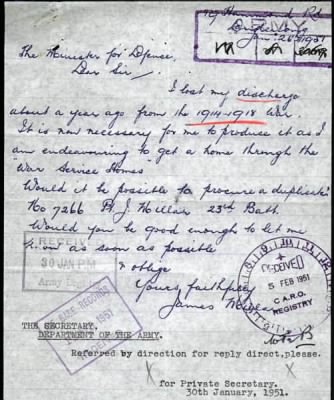 Rd
Jan. 26th 1951
ARMY
The Minister for Defence.
Dear Sir,
I lost my discharge
about a year ago from the 1914-1918 War.
It is now necessary for me to produce it as I
am endeavouring to get a home through the
War Service Homes
Would it be possible to procure a duplicate
No 7266 J. Millar 23rd Batt.
Would you be good enough to let me
know as soon as possible
& oblige
Yours faithfully
James Millar
RECEIVED
30 JAN PM
Army
BASE RECORDS
1951
RECEIVED
5 FEB 1951
C.A.R.O.
REGISTRY
THE SECRETARY,
DEPARTMENT OF THE ARMY.
Referred by direction for reply direct, please.
for Private Secretary.
30th January, 1951.